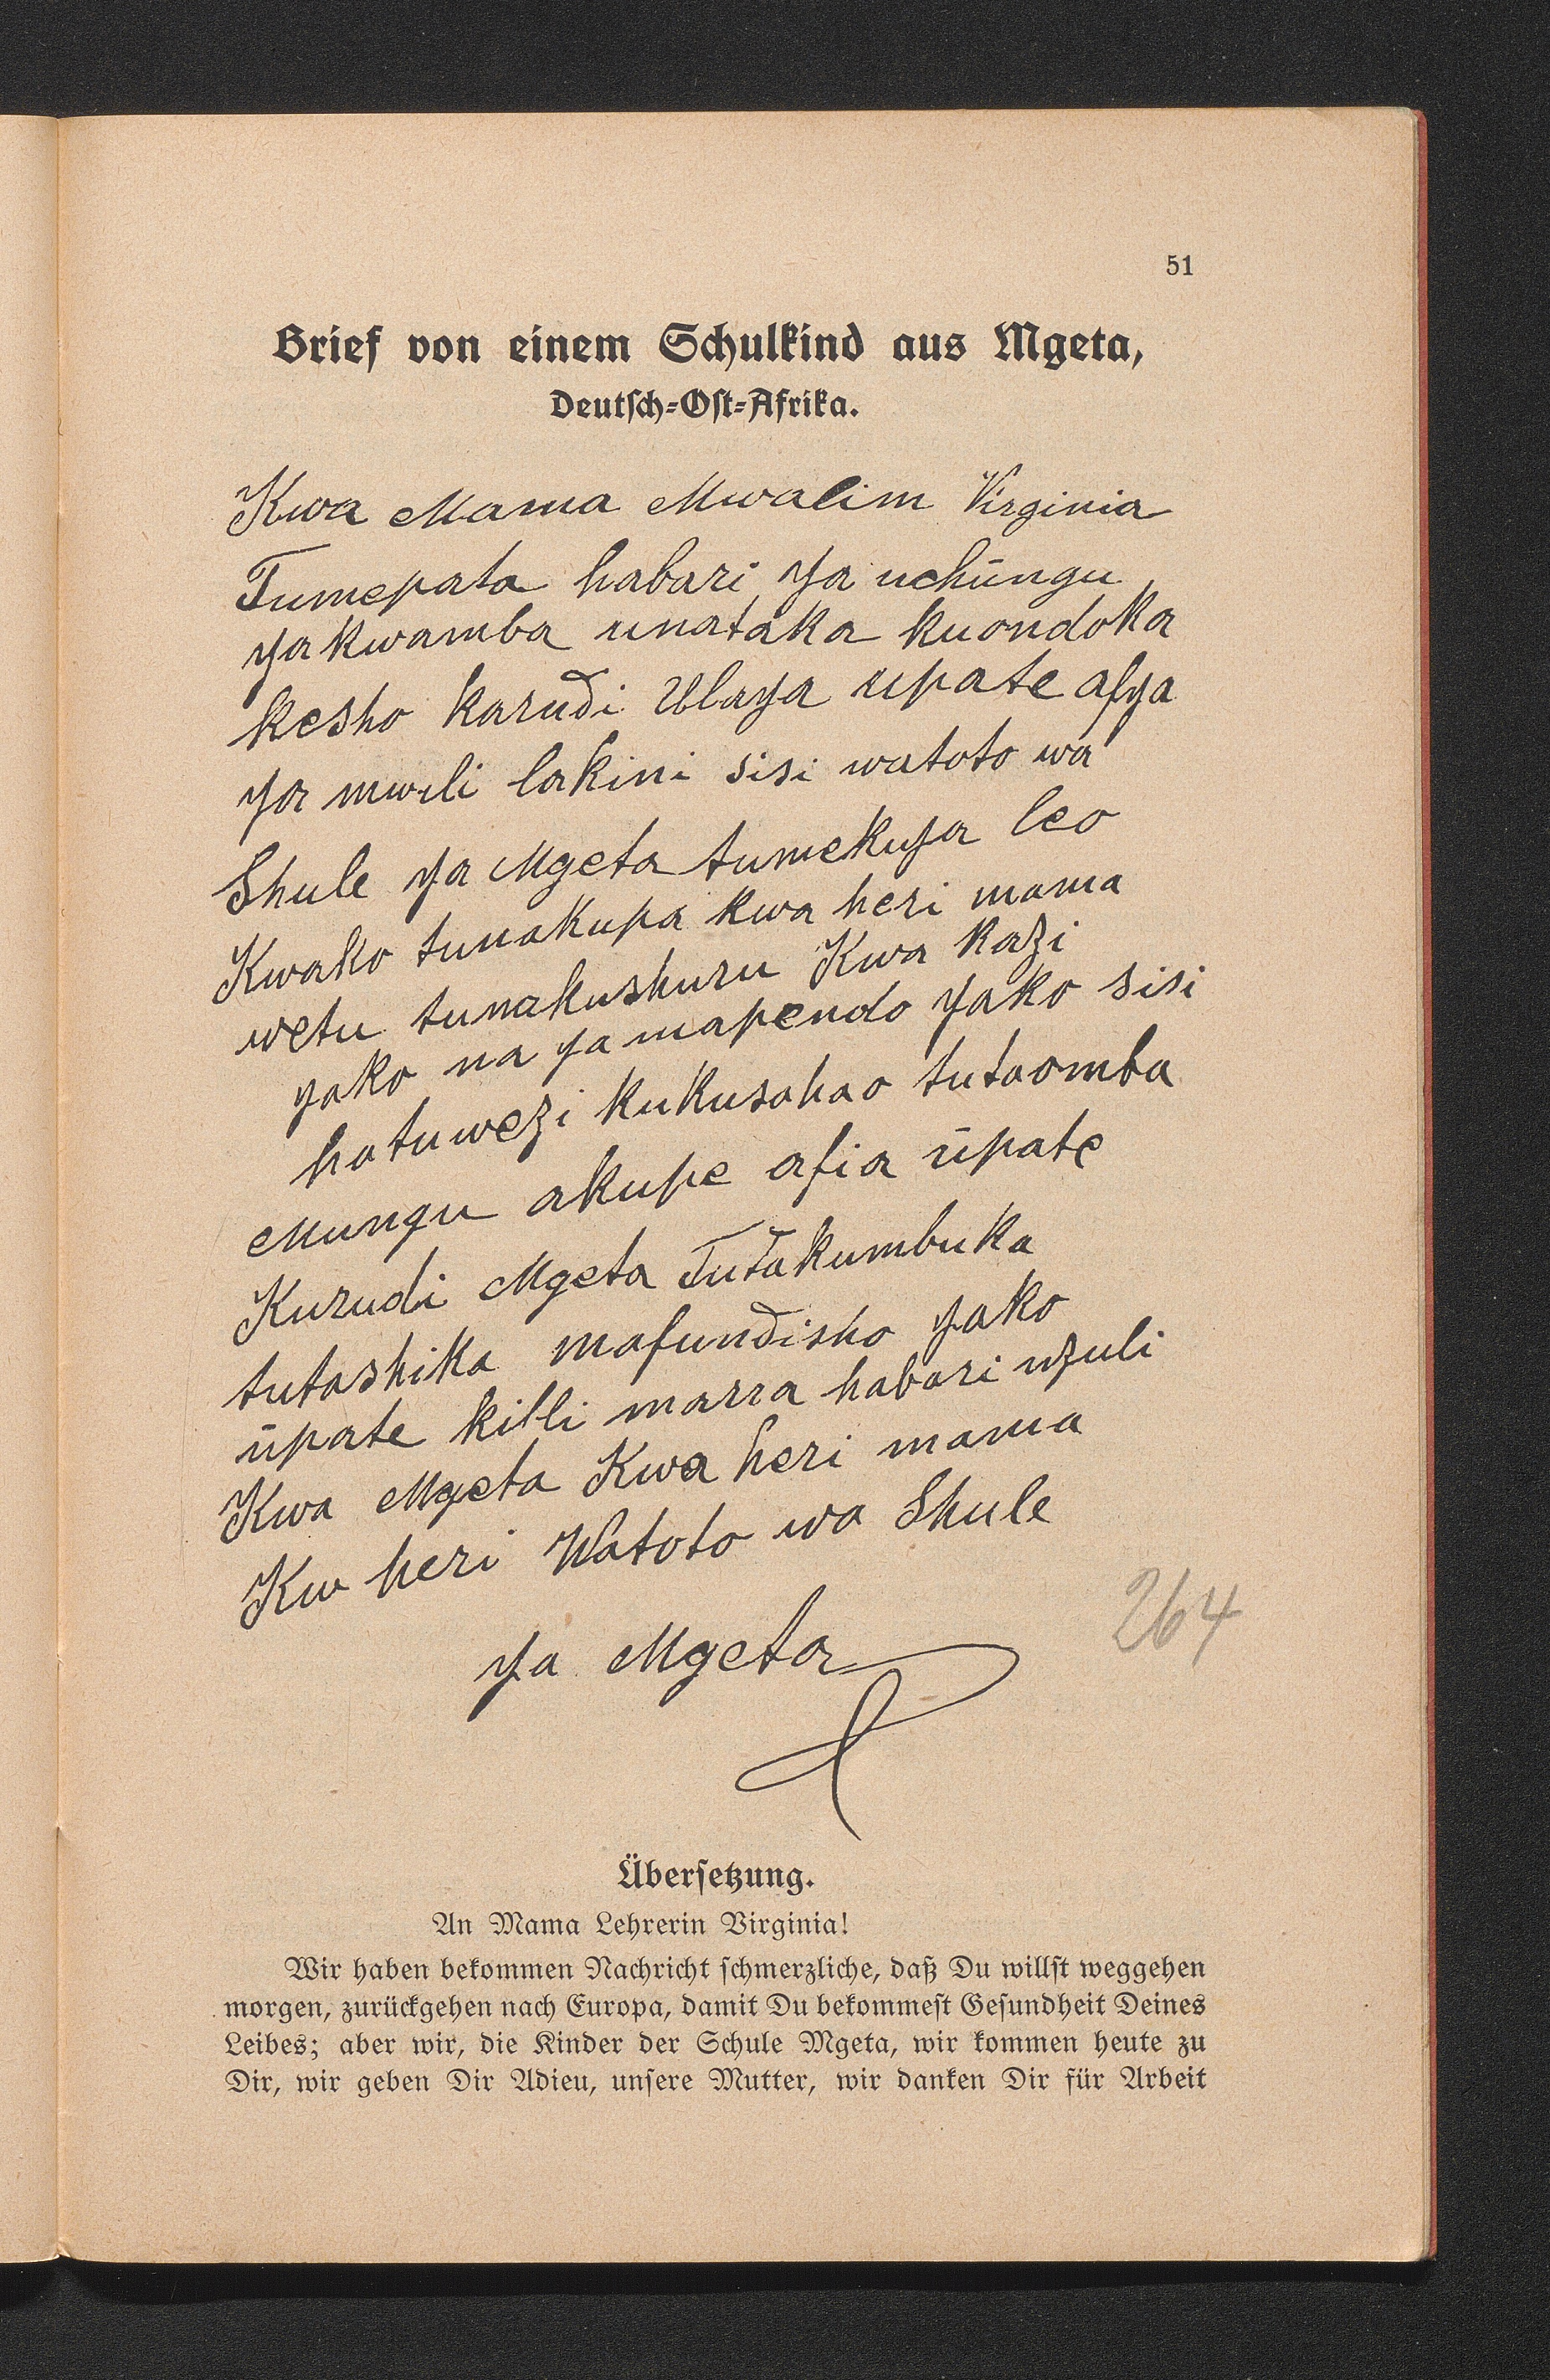 51
Brief von einem Schulkind aus Mgeta,
Deutsch-Ost-Afrika.
Kwa Mama Mwalim Virginia
Tumepata habari ya uchūngu
ya kwamba unataka kuondoka
kesho karudi Ulaya upate afya
ya mwili lakini sisi watoto wa
Shule ya Mgeta tumekuja leo
Kwako tunakupa kwa heri mama
wetu tunakushuru Kwa kazi
yako na ya mapendo yako sisi
hatuwezi kukusahao tutaomba
Mungu akupe afia ūpate
Kurudi Mgeta Tutakumbuka
tutashika mafundisho yako
ūpate killi marra habari nzuli
Kwa Mgeta Kwa heri mama
Kw heri Watoto wa Shule
ya Mgeta
264
Übersetzung.
An Mama Lehrerin Virginia!
Wir haben bekommen Nachricht schmerzliche, daß Du willst weggehen
morgen, zurückgehen nach Europa, damit Du bekommest Gesundheit Deines
Leibes; aber wir, die Kinder der Schule Mgeta, wir kommen heute zu
Dir, wir geben Dir Adieu, unsere Mutter, wir danken Dir für Arbeit